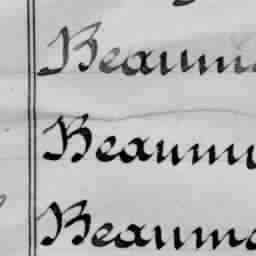 Beaum
Beaum
Beaum